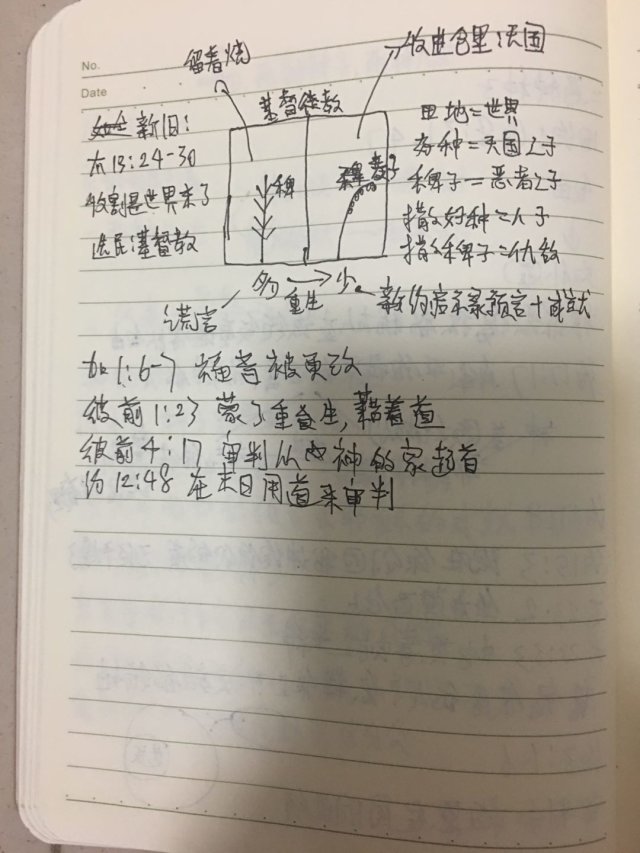 No.
Date
留着烧
收进仓里:天国
基督徒教
新旧:
太13:24-30
收割是世界末了
选民:基督教
稗
稗麦子
田地=世界
好种=天国之子
稗子=恶者之子
撒好种=人子
撒稗子=仇敌
多 → 少
重生
谎言
新约启示录预言+成就
加1:6-7 福音被更改
彼前1:23 蒙了重生,藉着道
彼前4:17 审判从神的家起首
约12:48 在末日用道来审判